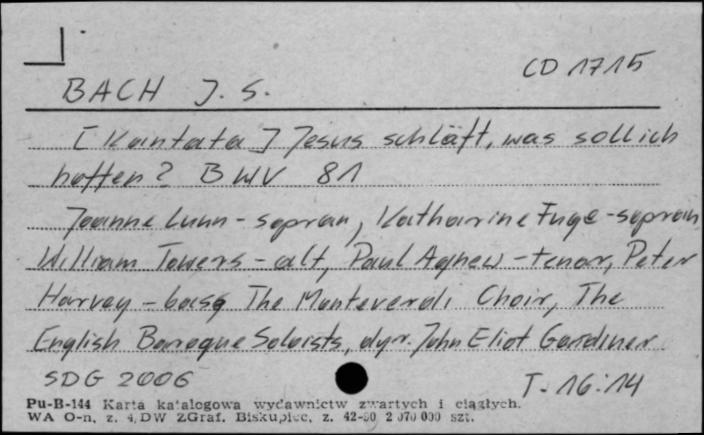 CD 1715
BACH J. S.
[Kantata] Jesus schläft, was soll ich
hoffen? BWV 81
Joanne Lunn - sopran, Katharine Fuge - sopran,
William Towers - alt, Paul Agnew - tenor, Peter
Harvey - bas, The Monteverdi Choir, The
English Baroque Soloists, dyr. John Eliot Gardiner
SDG 2006 T. 16:14
Pu-B-144 Karta katalogowa wydawnictw zwartych i ciągłych.
WA O-n, z. 4, DW ZGraf. Biskupiec, z. 42-80 2 070 000 szt.